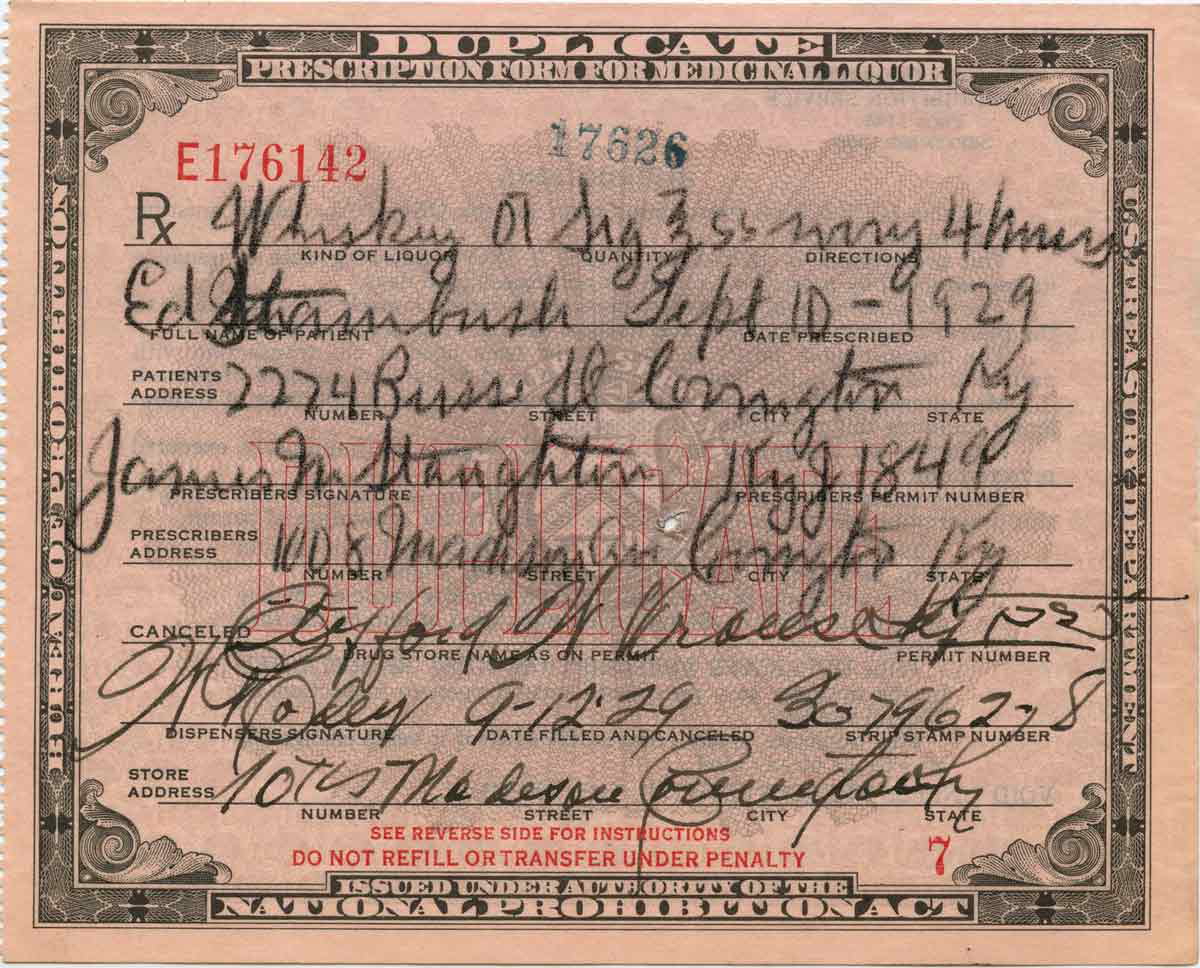 DUPLICATE
PRESCRIPTION FORM FOR MEDICINAL LIQUOR
E176142
17626
Rx Whiskey Sig every 4 hours
KIND OF LIQUOR QUANTITY DIRECTIONS
Ed Stambush Sept 10 - 1929
FULL NAME OF PATIENT DATE PRESCRIBED
PATIENTS ADDRESS 2274 Russell Covington Ky
NUMBER STREET CITY STATE
James M Staughton Ky J 1849
PRESCRIBERS SIGNATURE PRESCRIBERS PERMIT NUMBER
PRESCRIBERS ADDRESS 1008 Madison Av Covington Ky
NUMBER STREET CITY STATE
CANCELED Ky
DRUG STORE NAME AS ON PERMIT PERMIT NUMBER
9-12-29
DISPENSERS SIGNATURE DATE FILLED AND CANCELED STRIP STAMP NUMBER
STORE ADDRESS 10th Madison Covington Ky
NUMBER STREET CITY STATE
SEE REVERSE SIDE FOR INSTRUCTIONS
DO NOT REFILL OR TRANSFER UNDER PENALTY
7
ISSUED UNDER AUTHORITY OF THE
NATIONAL PROHIBITION ACT
BUREAU OF PROHIBITION
U.S. TREASURY DEPARTMENT
DUPLICATE